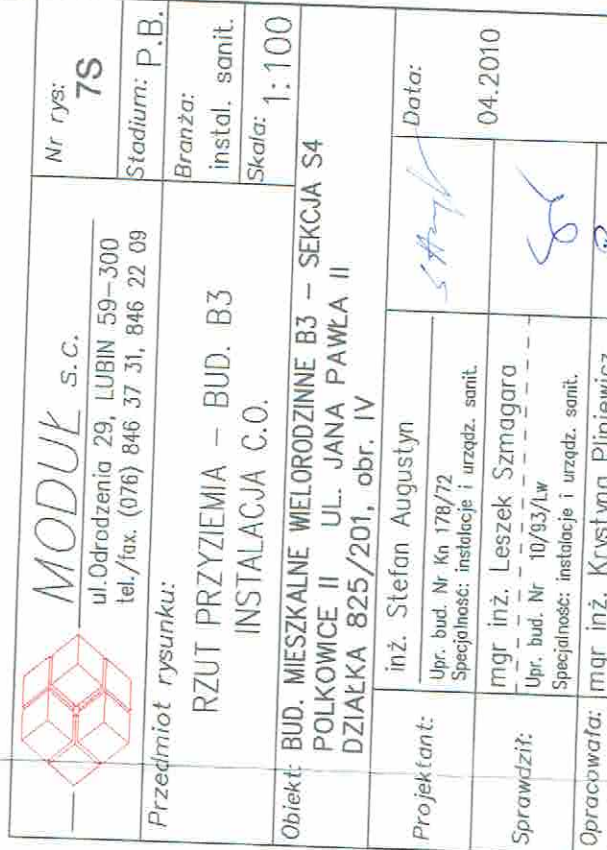 MODUŁ s.c.
ul.Odrodzenia 29, LUBIN 59-300
tel./fax. (076) 846 37 31, 846 22 09
Nr rys:
7S
Przedmiot rysunku:
RZUT PRZYZIEMIA – BUD. B3
INSTALACJA C.O.
Stadium: P.B.
Branża:
instal. sanit.
Skala: 1:100
Obiekt: BUD. MIESZKALNE WIELORODZINNE B3 – SEKCJA S4
POLKOWICE II UL. JANA PAWŁA II
DZIAŁKA 825/201, obr. IV
Projektant:
inż. Stefan Augustyn
Upr. bud. Nr Kn 178/72
Specjalność: instalacje i urządz. sanit.
Data:
04.2010
Sprawdził:
mgr inż. Leszek Szmagara
Upr. bud. Nr 10/93/Lw
Specjalność: instalacje i urządz. sanit.
Opracowała: mgr inż. Krystyna Pliniewicz